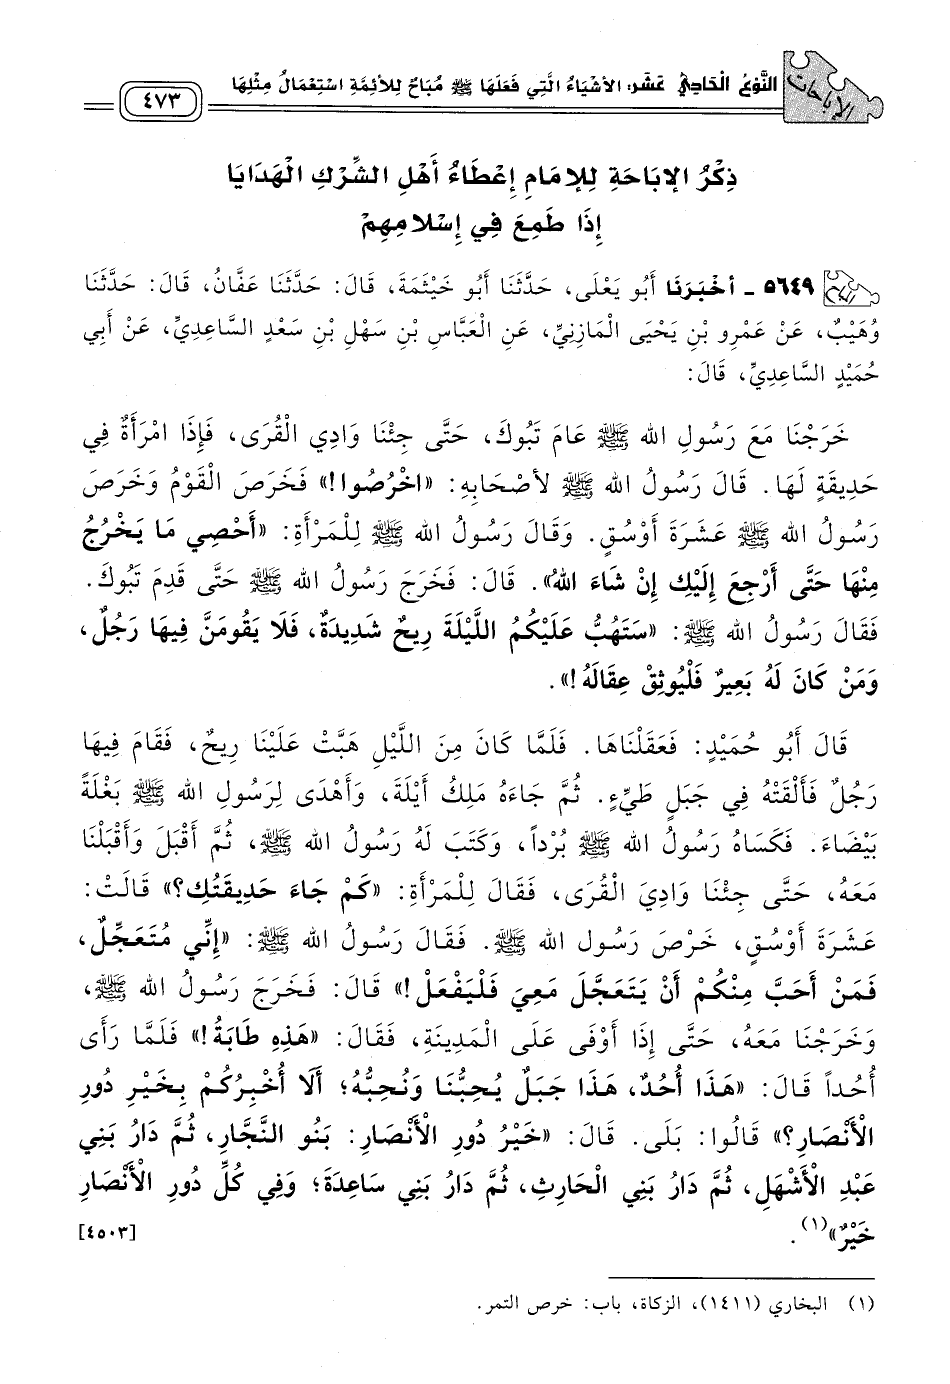 الإباحات
النَّوْعُ الْحَادِي عَشَرَ: الأَشْيَاءُ الَّتِي فَعَلَهَا ﷺ مُبَاحٌ لِلأَئِمَّةِ اسْتِعْمَالُ مِثْلِهَا
٤٧٣
ذِكْرُ الإِبَاحَةِ لِلإِمَامِ إِعْطَاءُ أَهْلِ الشِّرْكِ الْهَدَايَا
إِذَا طَمِعَ فِي إِسْلَامِهِمْ
٥٦٤٩ - أخْبَرَنَا أَبُو يَعْلَى، حَدَّثَنَا أَبُو خَيْثَمَةَ، قَالَ: حَدَّثَنَا عَفَّانُ، قَالَ: حَدَّثَنَا
وُهَيْبٌ، عَنْ عَمْرِو بْنِ يَحْيَى الْمَازِنِيِّ، عَنِ الْعَبَّاسِ بْنِ سَهْلِ بْنِ سَعْدٍ السَّاعِدِيِّ، عَنْ أَبِي
حُمَيْدٍ السَّاعِدِيِّ، قَالَ:
خَرَجْنَا مَعَ رَسُولِ الله ﷺ عَامَ تَبُوكَ، حَتَّى جِئْنَا وَادِي الْقُرَى، فَإِذَا امْرَأَةٌ فِي
حَدِيقَةٍ لَهَا. قَالَ رَسُولُ الله ﷺ لأَصْحَابِهِ: «اخْرُصُوا!» فَخَرَصَ الْقَوْمُ وَخَرَصَ
رَسُولُ الله ﷺ عَشَرَةَ أَوْسُقٍ. وَقَالَ رَسُولُ الله ﷺ لِلْمَرْأَةِ: «أَحْصِي مَا يَخْرُجُ
مِنْهَا حَتَّى أَرْجِعَ إِلَيْكِ إِنْ شَاءَ اللهُ». قَالَ: فَخَرَجَ رَسُولُ الله ﷺ حَتَّى قَدِمَ تَبُوكَ.
فَقَالَ رَسُولُ الله ﷺ: «سَتَهُبُّ عَلَيْكُمُ اللَّيْلَةَ رِيحٌ شَدِيدَةٌ، فَلَا يَقُومَنَّ فِيهَا رَجُلٌ،
وَمَنْ كَانَ لَهُ بَعِيرٌ فَلْيُوثِقْ عِقَالَهُ!».
قَالَ أَبُو حُمَيْدٍ: فَعَقَلْنَاهَا. فَلَمَّا كَانَ مِنَ اللَّيْلِ هَبَّتْ عَلَيْنَا رِيحٌ، فَقَامَ فِيهَا
رَجُلٌ فَأَلْقَتْهُ فِي جَبَلِ طَيِّءٍ. ثُمَّ جَاءَهُ مَلِكُ أَيْلَةَ، وَأَهْدَى لِرَسُولِ الله ﷺ بَغْلَةً
بَيْضَاءَ. فَكَسَاهُ رَسُولُ الله ﷺ بُرْداً، وَكَتَبَ لَهُ رَسُولُ الله ﷺ، ثُمَّ أَقْبَلَ وَأَقْبَلْنَا
مَعَهُ، حَتَّى جِئْنَا وَادِيَ الْقُرَى، فَقَالَ لِلْمَرْأَةِ: «كَمْ جَاءَ حَدِيقَتُكِ؟» قَالَتْ:
عَشَرَةَ أَوْسُقٍ، خَرْصَ رَسُولِ الله ﷺ. فَقَالَ رَسُولُ الله ﷺ: «إِنِّي مُتَعَجِّلٌ،
فَمَنْ أَحَبَّ مِنْكُمْ أَنْ يَتَعَجَّلَ مَعِيَ فَلْيَفْعَلْ!» قَالَ: فَخَرَجَ رَسُولُ الله ﷺ،
وَخَرَجْنَا مَعَهُ، حَتَّى إِذَا أَوْفَى عَلَى الْمَدِينَةِ، فَقَالَ: «هَذِهِ طَابَةُ!» فَلَمَّا رَأَى
أُحُداً قَالَ: «هَذَا أُحُدٌ، هَذَا جَبَلٌ يُحِبُّنَا وَنُحِبُّهُ؛ أَلَا أُخْبِرُكُمْ بِخَيْرِ دُورِ
الْأَنْصَارِ؟» قَالُوا: بَلَى. قَالَ: «خَيْرُ دُورِ الْأَنْصَارِ: بَنُو النَّجَّارِ، ثُمَّ دَارُ بَنِي
عَبْدِ الْأَشْهَلِ، ثُمَّ دَارُ بَنِي الْحَارِثِ، ثُمَّ دَارُ بَنِي سَاعِدَةَ؛ وَفِي كُلِّ دُورِ الْأَنْصَارِ
خَيْرٌ»(١). [٤٥٠٣]
(١) البخاري (١٤١١)، الزكاة، باب: خرص التمر.